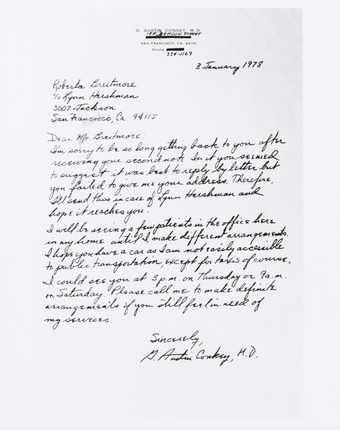 G. AUSTIN CONKEY, M.D.
SAN FRANCISCO, CA.
3 January 1978
Roberta Breitmore
c/o Lynn Hershman
3007 Jackson
San Francisco, Ca 94115
Dear Ms. Breitmore,
I'm sorry to be so long getting back to you after
receiving your second note. In it you seemed
to suggest it was best to reply by letter but
you failed to give me your address. Therefore,
I'll send this in case of Lynn Hershman and
hope it reaches you.
I will be seeing a few patients in the office here
in my home until I make different arrangements.
I hope you have a car as I am not easily accessible
to public transportation, except for taxis of course.
I could see you at 3 p.m. on Thursday or 9 a.m.
on Saturday. Please call me to make definite
arrangements if you still feel in need of
my services.
Sincerely,
G. Austin Conkey, M.D.